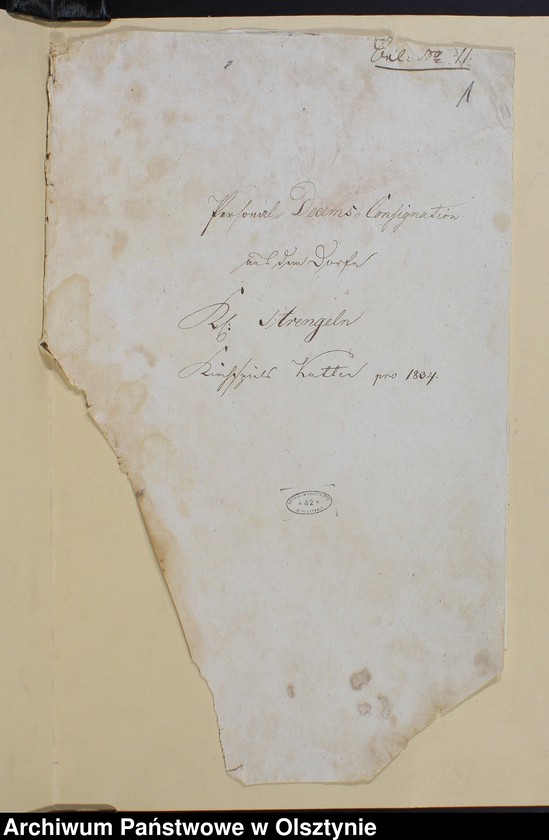 Bel: No 11.
1
Personal Decems-Consignation
aus dem Dorfe
Kl: Strengeln
Kirchspiels Kutten pro 1834.
42
Archiwum Państwowe w Olsztynie